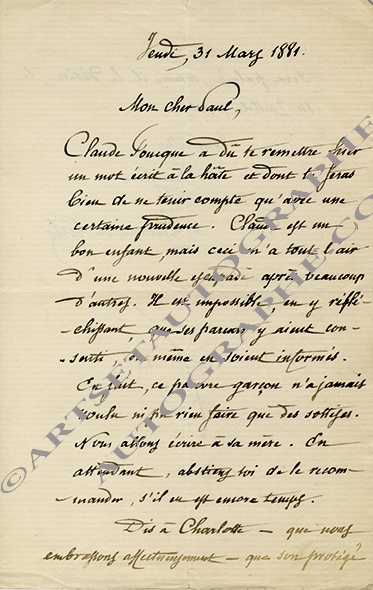 Jeudi, 31 Mars 1881.
Mon cher Paul,
Claude a dû te remettre hier
un mot écrit à la hâte et dont tu feras
bien de ne tenir compte qu'avec une
certaine prudence. Claude est un
bon enfant, mais ceci m'a tout l'air
d'une nouvelle escapade après beaucoup
d'autres. Il est impossible, en y réflé-
chissant, que ses parents y aient con-
senti, ou même en soient informés.
En fait, ce pauvre garçon n'a jamais
voulu ni pu rien faire que des sottises.
Nous allons écrire à sa mère. En
attendant, abstiens toi de le recom-
mander, s'il en est encore temps.
Dis à Charlotte – que nous
embrassons affectueusement – que son protégé
©ARTSETAUTOGRAPHE
AUTOGRAPHE.CO